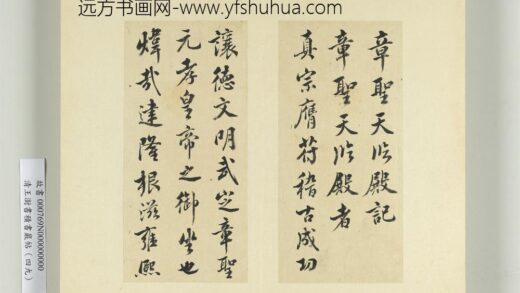 远方书画网-www.yfshuhua.com
章聖天臨殿記
章聖天臨殿者
真宗膺符稽古成功
讓德文明武定章聖
元孝皇帝之御坐也
煒哉建隆根滋雍熙
故書000769N00000000
清王澍書積書巖帖(四九)